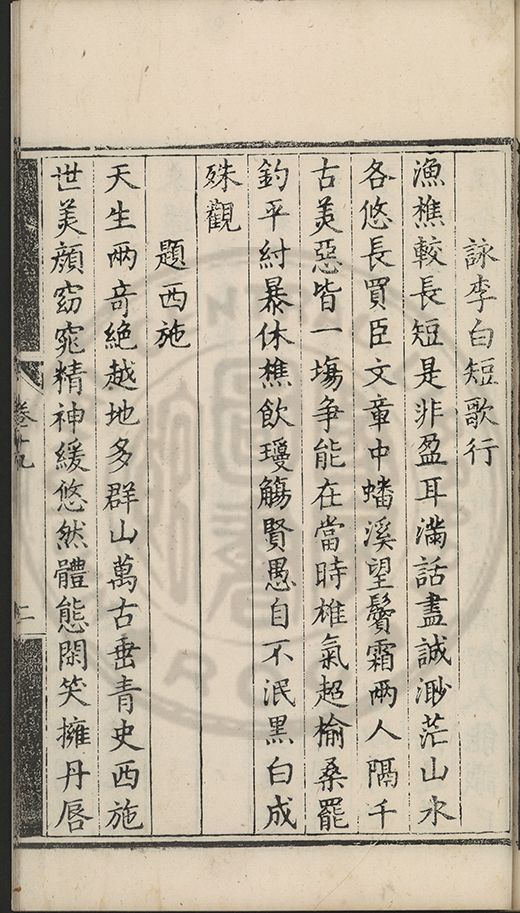 詠李白短歌行
漁樵較長短是非盈耳滿話盡誠渺茫山水
各悠長買臣文章中蟠溪望鬢霜兩人隔千
古美惡皆一塲争能在當時椎氣超榆桑罷
釣平紂暴休樵飲瓊觴賢愚自不泯黑白成
殊觀
題西施
天生兩竒絶越地多群山萬古垂青史西施
世美顔窈窕精神緩悠然體態閑笑擁丹唇
卷十九
二